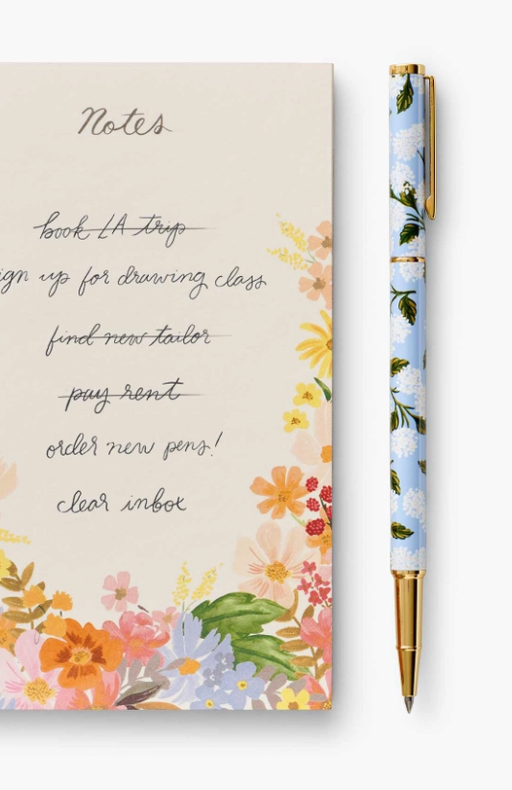 Notes
book LA trip
ign up for drawing class
find new tailor
pay rent
order new pens!
clear inbox